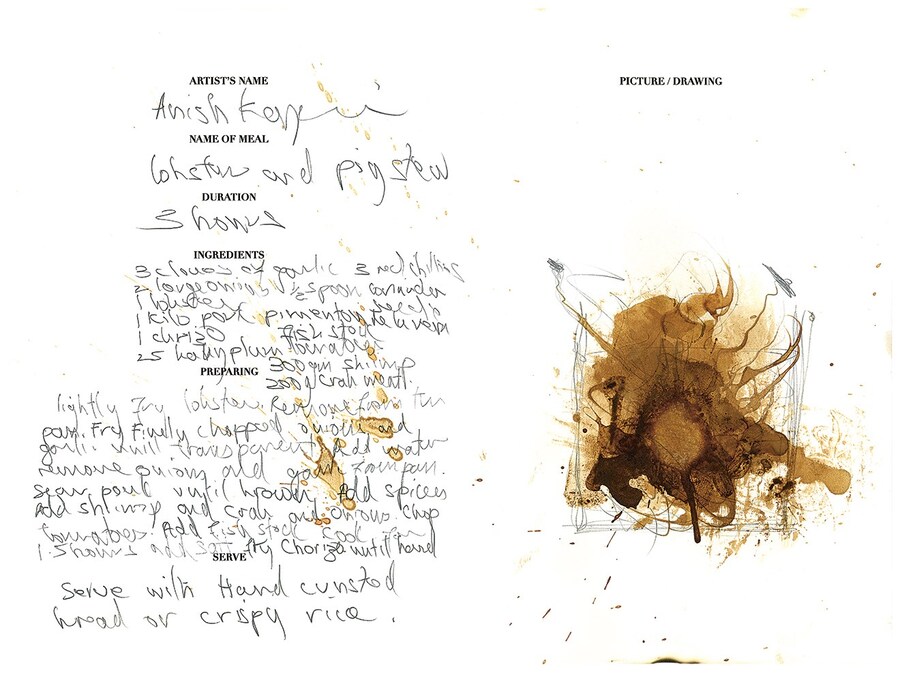 ARTIST'S NAME
Anish Kapoor
NAME OF MEAL
lobster and pig stew
DURATION
3 hours
INGREDIENTS
3 cloves of garlic 3 red chillies
2 large onions ½ spoon coriander
1 lobster seeds
1 kilo pork pimenton de la vera
1 chrizo fish stock
25 baby plum tomatoes
300gm shrimp
200g crab meat.
PREPARING
lightly fry lobster. Remove from the
pan. Fry finely chopped onions and
garlic until transparent. Add water
remove onions and from pan.
Sear pork until brown. Add spices
Add shrimp and crab and onions. Chop
tomatoes. Add fish stock cook for
1.5 hours fry chorizo until hard
SERVE
Serve with Hard crusted
bread or crispy rice.
PICTURE / DRAWING